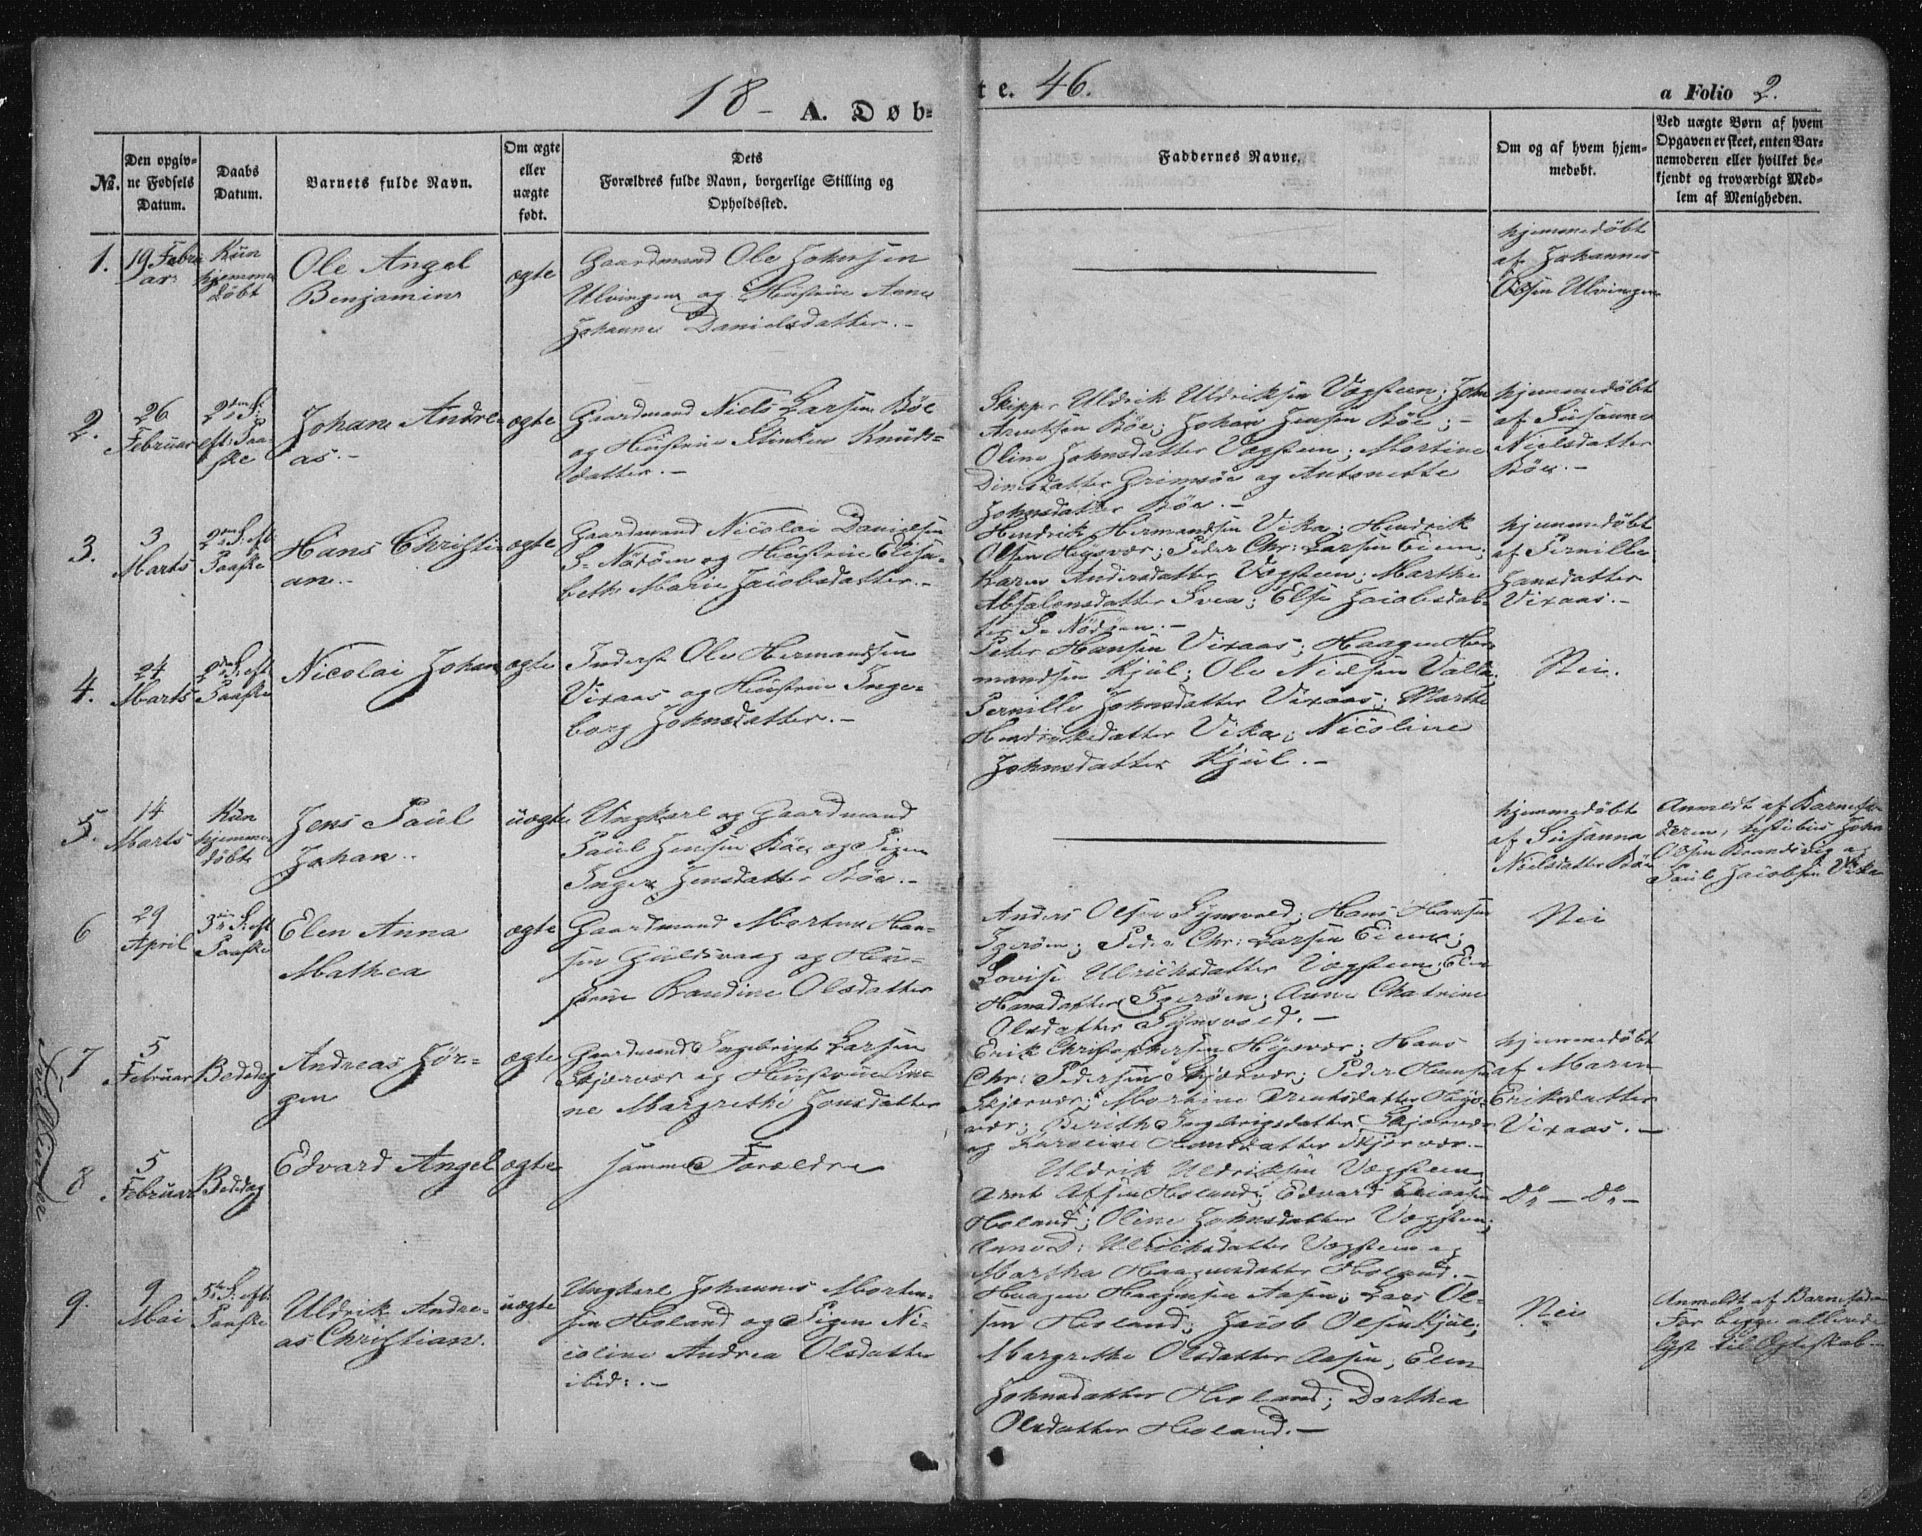 18- A. Døb-
te. 46.
a Folio 2.
No.
Den opgiv-
ne Fødsels
Datum.
Daabs
Datum.
Barnets fulde Navn.
Om ægte
eller
uægte
født.
Dets
Forældres fulde Navn, borgerlige Stilling og
Opholdssted.
Faddernes Navne.
Om og af hvem hjem-
medøbt.
Ved uægte Børn af hvem
Opgaven er skeet, enten Bar-
nemoderen eller hvilket be-
kjendt og troværdigt Med-
lem af Menigheden.
1.
19 Febru
ar
Kun
hjemme
døbt
Ole Angel
Benjamin
ægte
Gaardmand Ole Johnsen
Ulvingen og Hustrue Anne
Johanne Danielsdatter.-
hjemmedøbt
af Johannes
Olsen Ulvingen
2.
26
Februar
2den S.
eft: Paa-
ske
Johan Andre-
as.-
ægte
Gaardmand Niels Larsen Böe
og Hustrue Stinken Knuds-
datter.-
Skipper Uldrik Uldriksen Vægsteen; John
Arntsen Böe; Johan Jensen Böe;-
Oline Johnsdatter Vægsteen; Martine
Dinesdatter Grimsöe og Antonette
Johnsdatter Böe.-
hjemmedøbt
af Susanna
Nielsdatter
Böe.-
3.
3
Marts
2den S. eft
Paaske
Hans Christi-
an.-
ægte
Gaardmand Nicolai Danielsen
S. Nöröen og Hustrue Elisa-
beth Marie Jacobsdatter.-
Hendrik Hermandsen Vika; Hendrik
Olsen Höysvær; Peder Chr: Larsen Eiem;
Karen Andersdatter Vægsteen; Marthe
Absalonsdatter Svea; Else Jacobsdat-
ter S. Nöröen.-
hjemmedøbt
af Pernille
Hansdatter
Vixaas.-
4.
24
Marts
2den S. eft
Paaske
Nicolai Johan
ægte
Inderst Ole Hermandsen
Vixaas og Hustrue Inge-
borg Johnsdatter.-
Peter Hansen Vixaas; Haagen Her-
mandsen Kjul; Ole Nielsen Valla;
Pernille Johnsdatter Vixaas; Marthe
Hendriksdatter Vika; Nicoline
Johnsdatter Kjul.-
Nei.
5.
14
Marts
Kun
hjemme
døbt
Jens Paul
Johan.
uægte
Ungkarl og Gaardmand
Paul Jensen Böe og Pigen
Inger Jensdatter Böe.-
hjemmedøbt
af Susanna
Nielsdatter Böe
Anmeldt af Barnefa-
deren, testibus John
Olsen Brandsvig og
Paul Jacobsen Vika
6
29
April
3die S. eft
Paaske
Elen Anna
Mathea
ægte
Gaardmand Morten Han-
sen Guldsvaag og Hu-
strue Randine Olsdatter
Anders Olsen Synsvold; Hans Hansen
Igeröen; Peder Chr: Larsen Eiem;
Lovise Ulrichsdatter Vægsteen; Elen
Hansdatter Igeröen; Anne Chatrine
Olsdatter Synsvold.-
Nei
Tvillinger
7
5
Februar
Bededag
Andreas Jör-
gen
ægte
Gaardmand Ingebrigt Larsen
Skjærvær og Hustrue An-
ne Margrethe Jonsdatter
Erik Christophersen Höysvær; Hans
Chr: Pedersen Skjærvær; Peder Hansen
Skjærvær; Martine Arentsdatter Höys-
vær; Berith Ingebrigtsdatter Skjærvær
og Karoline Hansdatter Skjærvær.-
hjemmedøbt
af Maren
Eriksdatter
Vixaas.-
8
5
Februar
Bededag
Edvard Angel
ægte
samme Forældre
Uldrik Uldriksen Vægsteen;
Arnt Olsen Holand; Edvard
Holand; Oline Johnsdatter Vægsteen;
Ulrichsdatter Vægsteen og
Martha Haagensdatter Holand.-
Do - Do -
9.
9
Mai
5te S. eft
Paaske
Uldrik Andre-
as Christian.
uægte
Ungkarl Johannes Morten-
sen Holand og Pigen Ni-
coline Andrea Olsdatter
ibid:.-
Haagen Haagensen Aasen; Lars Ol-
sen Holand; Jacob Olsen Kjul;
Margrethe Olsdatter Aasen; Elen
Johnsdatter Holand; Dorthea
Olsdatter Holand.-
Nei
Anmeldt af Barnefaderen
For begge allerede
lyst til Ægteskab.-